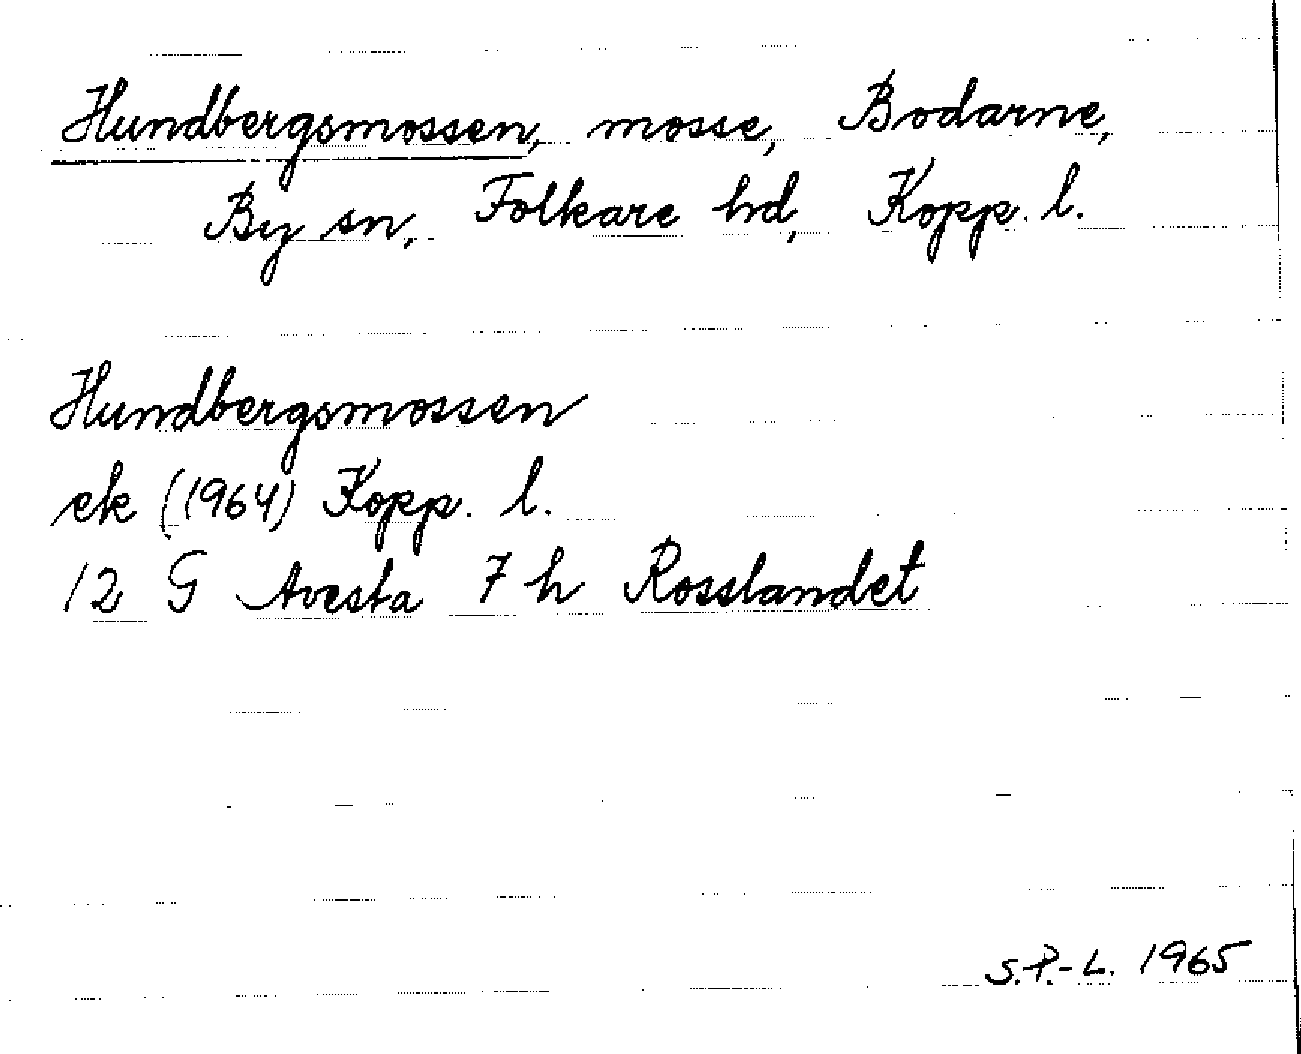 Hundbergsmossen, mosse, Bodarne,
By sn, Folkare hd, Kopp. l.
Hundbergsmossen
ek (1964) Kopp. l.
12 G Avesta 7 h Rosslandet
S.P.-L. 1965